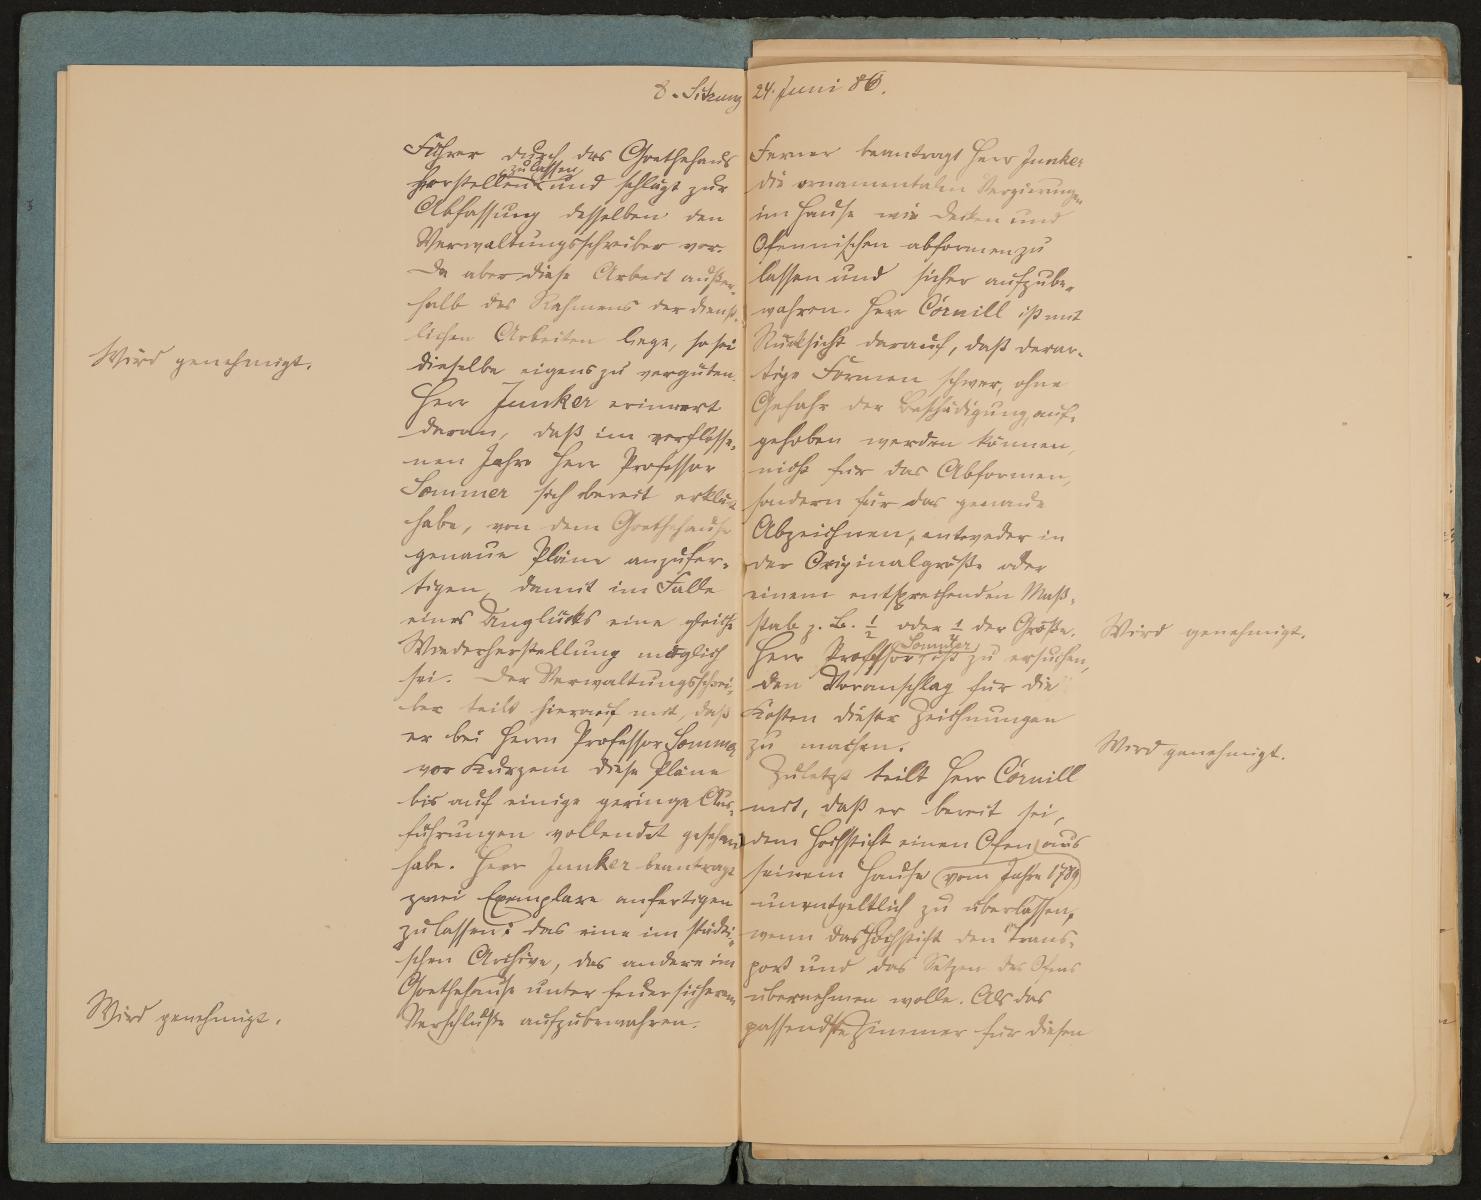 8. Sitzung 24. Juni 86.
Führer durch das Goethehaus
zulassen
herstellen und schlägt zur
Abfassung desselben den
Verwaltungsschreiber vor.
Da aber diese Arbeit außer-
halb des Rahmens der dienst-
lichen Arbeiten liege, so sei
Wird genehmigt.
dieselbe eigens zu vergüten.
Herr Junker erinnert
daran, daß im verflosse-
nen Jahre Herr Professor
Sommer sich bereit erklärt
habe, von dem Goethehause
genaue Pläne anzufer-
tigen, damit im Falle
eines Unglücks eine gleiche
Wiederherstellung möglich
sei. Der Verwaltungsschrei-
ber teilt hierauf mit, daß
er bei Herrn Professor Sommer
vor Kurzem diese Pläne
bis auf einige geringe Aus-
führungen vollendet gesehen
habe. Herr Junker beantragt
zwei Exemplare anfertigen
zu lassen: das eine im städti-
schen Archive, das andere im
Goethehause unter feuersicherem
Wird genehmigt.
Verschluße aufzubewahren.
Ferner beantragt Herr Junker
die ornamentalen Verzierungen
im Hause wie Decken und
Ofennischen abformen zu
lassen und sicher aufzube-
wahren. Herr Cornill ist mit
Rücksicht darauf, daß derar-
tige Formen schwer, ohne
Gefahr der Beschädigung, auf-
gehoben werden können,
nicht für das Abformen,
sondern für das genaue
Abzeichnen, entweder in
der Originalgröße oder
einem entsprechenden Maß-
stab z. B. 1/2 oder 1/4 der Größe.
Wird genehmigt.
Sommer
Herr Professor ist zu ersuchen,
den Voranschlag für die
Kosten dieser Zeichnungen
zu machen.
Wird genehmigt.
Zuletzt teilt Herr Cornill
mit, daß er bereit sei,
dem Hochstift einen Ofen aus
seinem Hause (vom Jahre 1789)
unentgeltlich zu überlassen,
wenn das Hochstift den Trans-
port und das Setzen des Ofens
übernehmen wolle. Als das
passendste Zimmer für diesen